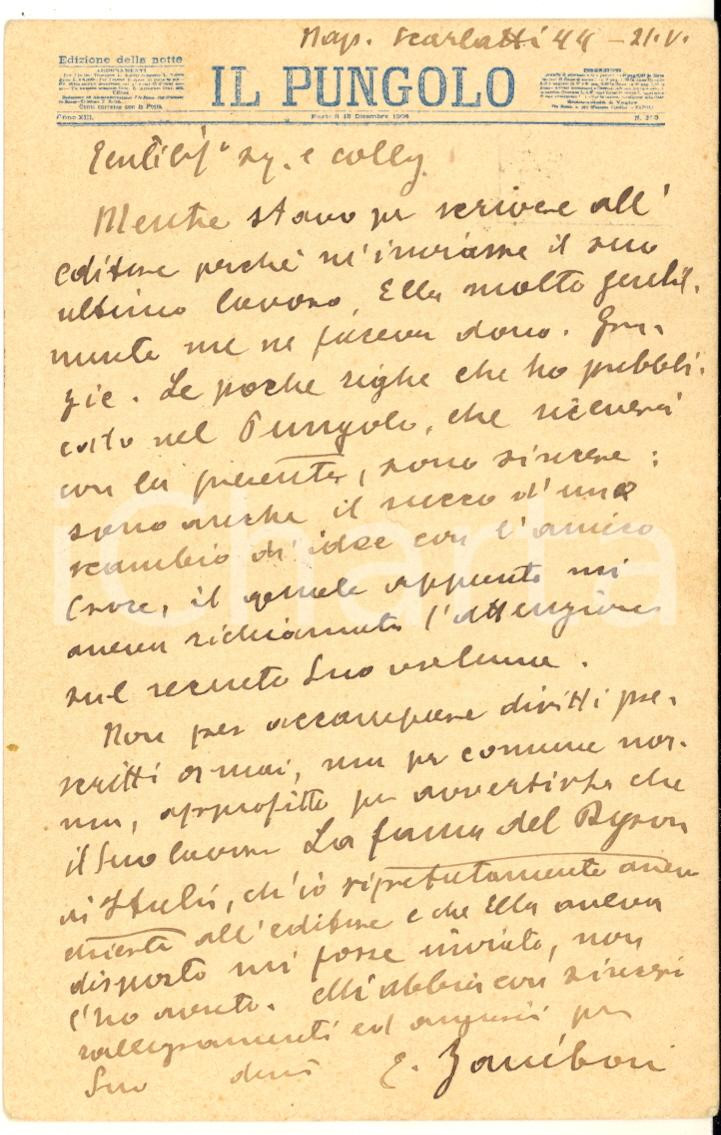 Nap. Scarlatti 44 - 21.V.
Edizione della notte
ABBONAMENTI
IL PUNGOLO
Conti correnti con la Posta
Anno XIII.
Dicembre 1904
N.
Gentiliss° sig. e colleg.
Mentre stavo per scrivere all'
editore perchè m'inviasse il suo
ultimo lavoro, Ella molto gentil-
mente me ne faceva dono. Gra-
zie. Le poche righe che ho pubbli-
cato nel Pungolo, che riceverà
con la presente, sono sincere:
sono anche il succo d'uno
scambio di idee con l'amico
Croce, il quale appunto mi
aveva richiamato l'attenzione
sul recente Suo volume.
Non per accampare diritti pre-
scritti ormai, ma per comune nor-
ma, approfitto per avvertirla che
il Suo lavoro La fama del Byron
in Italia, ch'io ripetutamente avevo
chiesto all'editore e che Ella aveva
disposto mi fosse inviato, non
l'ho avuto. Mi abbia con sinceri
rallegramenti ed auguri per
Suo dev°
E. Zaniboni
iCharta